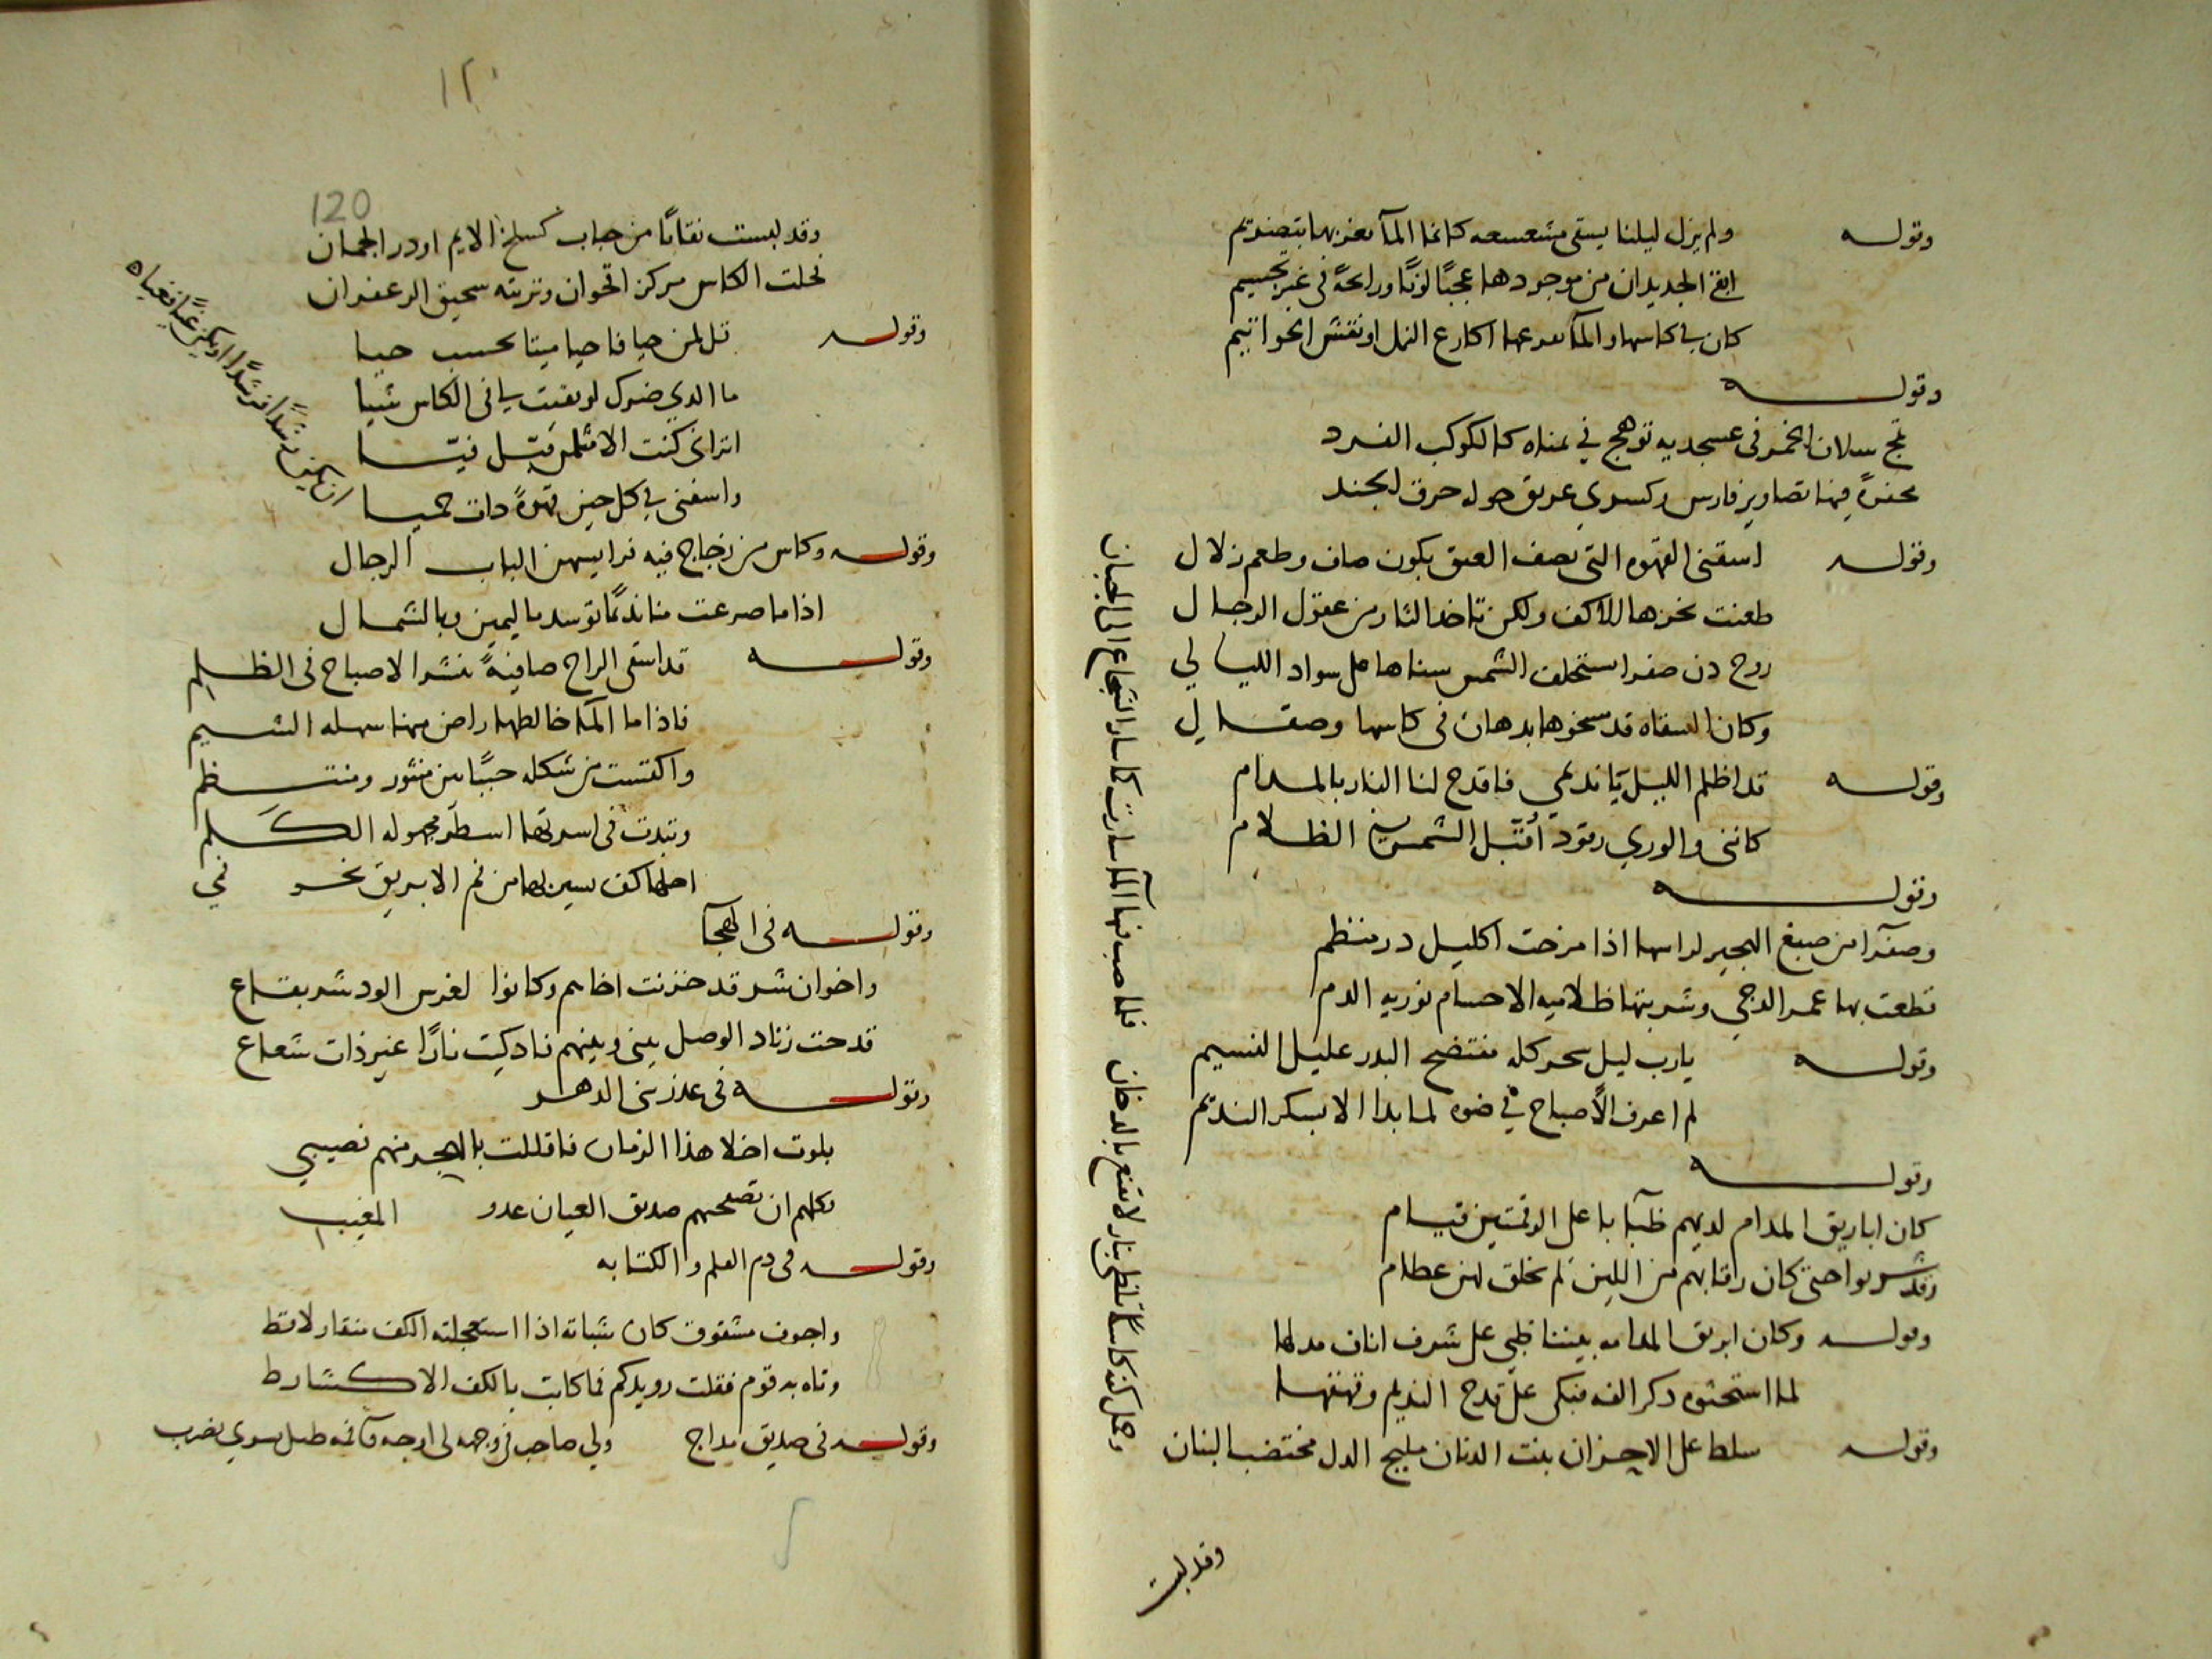 وقوله ولم يزل ليلنا يسقى مشعسعه كانما المآ يغريها بتصديم
ابقى الجديدان من موجودها عجبًا لونًا ورايحةً في غير تجسيم
كان في كاسها والمآ يقرعها اكارع النمل او نقش الخواتيم
وقوله
تج سلاف الخمر في عسجديه توهج في يمناه كالكوكب الفرد
محفرةً فيها تصاوير فارس وكسرى غريق حوله خرق الجند
وقوله اسقنى القهوه التي تصف العتق بلون صاف وطعم زلال
طعنت نحرها الاكف ولكن تاخذ الثار من عقول الرجال
روح دن صفرا ستخلف الشمس سناها على سواد الليالي
وكان السقاه قد سخوها بدهان في كاسها وصقال
وقوله قد اظلم الليل يا نديمي فاقدح لنا النار بالمدام
كاننى والورى رقود اقبل الشمس في الظلام
وقوله
وصفرآ من صبغ الهجير لراسها اذا مزجت اكليل در منظم
قطعت بها عمر الدجي وشربتها ظلاميه الاجسام نوريه الدم
وقوله يارب ليل سحر كله مفتضح البدر عليل النسيم
لم اعرف الاصباح في ضوه لما بدا الا بسكر النديم
وقوله
كان اباريق المدام لديهم ظبآ با على الرقمتين قيام
وقد شربوا حتى كان رقابهم من اللين لم تخلق لهن عظام
وقوله وكان ابريق المدامه بيننا ظبي على شرف اناف مدلها
لما استحثوه ذكر الفه فبكى على قدح النديم وقهقها
وقوله سلط على الاحزان بنت الدنان مليح الدل مختضب البنان
وحمل كفه كاسًا تلظى بنار لا تقنع بالدخان فلما صب فيها المآ سارت كما سار الشجاع الى الجبان
وقد لبست
١٢٠
120
وقد لبست نقابًا من حباب كسلخ الايم او در الجمان
فخلت الكاس مركز اقحوان وتربته سحيق الزعفران
وقوله قل لمن حيا فاحيا ميتا يحسب حيا
ما الذي ضرك لو بقيت لي في الكاس شيا
اتراني كنت الا مثل من قبل فيتا
واسقني في كل حين قهوةً ذات حميا
ان يكن رشدًا فرشدًا او يكن غيًا فغياه
وقوله وكاس من زجاج فيه فرايسهن الباب الرجال
اذا ما صرعت منا نديمًا توسد باليمين وبالشمال
وقوله قد اسقى الراح صافيةً تنشر الاصباح في الظلم
فاذا ما المآ خالطها راض منها سهله الشيم
واكتست من شكله حببًا بين منثور ومنتظم
وتبدت في اسرتها اسطر مجهوله الكلم
وقوله في الهجآ
واخوان شر قد حرثت اخاهم وكانوا لغرس الود شر بقاع
قدحت زناد الوصل بيني وبينهم فاذكيت نارًا غير ذات شعاع
وقوله في غدر بني الدهر
بلوت اخلا هذا الزمان فاقللت بالهجر منهم نصيبي
وكلهم ان تصفحتهم صديق العيان عدو المغيب
وقوله في ذم القلم والكتابه
واجوف مشقوق كان شباته اذا استعجلته الكف منقار لاقط
وتاه به قوم فقلت رويدكم فما كاتب بالكف الا كشارط
وقوله في صديق مداج ولي صاحب في وجهه لي اوجه